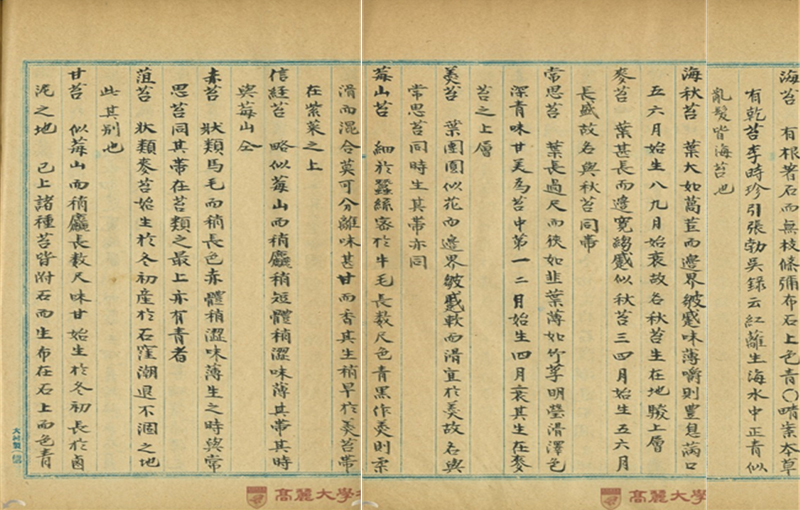 海苔 有根着石而無枝條彌布石上色青〇晴案本草
有乾苔李時珍引張勃吳錄云紅蘺生海水中正青似
亂髮皆海苔也
海秋苔 葉大如萵苣而邊界皴蹙味薄嚼則豐息滿口
五六月始生八九月始衰故名秋苔生在地騣上層
麥苔 葉甚長而邊寬縐蹙似秋苔三四月始生五六月
長盛故名與秋苔同帶
常思苔 葉長過尺而狹如韭葉薄如竹莩明瑩滑澤色
深青味甘美爲苔中第一二月始生四月衰其生在麥
苔之上層
羹苔 葉團圓似花而邊界皴蹙軟而滑宜於羹故名與
常思苔同時生其帶亦同
莓山苔 細於蠶絲密於牛毛長數尺色青黑作羹則柔
滑而混合莫可分離味甚甘而香其生稍早於羹苔帶
在紫菜之上
信經苔 略似莓山而稍麤稍短體稍澁味薄其帶其時
與莓山仝
赤苔 狀類馬毛而稍長色赤體稍澁味薄生之時與常
思苔同其帶在苔類之最上亦有青者
菹苔 狀類麥苔始生於冬初産於石窪潮退不涸之地
此其別也
甘苔 似莓山而稍麤長數尺味甘始生於冬初長於鹵
泥之地 已上諸種苔皆附石而生布在石上而色青
高麗大學
高麗大學